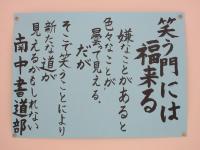 笑う門には
福来る
嫌なことがあると
色々なことが
曇って見える。
だが
そこで笑うことにより
新たな道が
見えるかもしれない
南中書道部